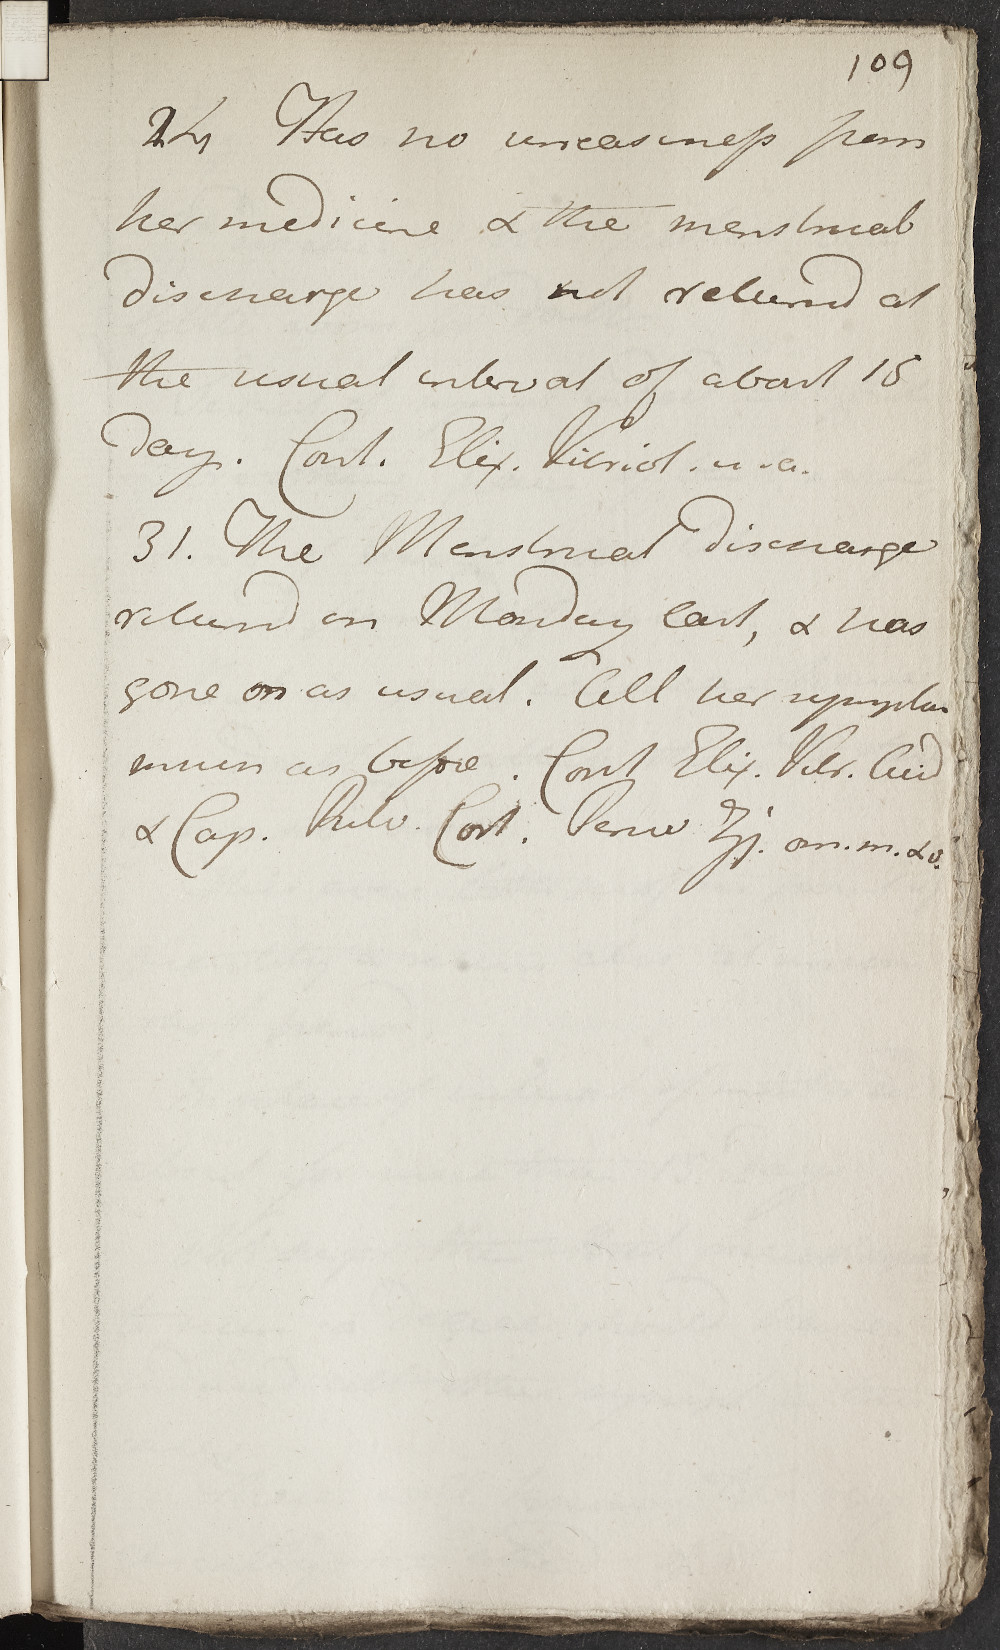 109
24 Has no uneasiness from
her medicine & the menstrual
discharge has not returnd at
the usual interval of about 15
days. Cont. Elix. Vitriol. u.a.
31. The Menstrual discharge
returnd on Monday last, & has
gone on as usual. All her symptoms
much as before. Cont Elix. Vitr. Acid
& Cap. Pulv. Cort. Peruv ʒj. om. m. & v.